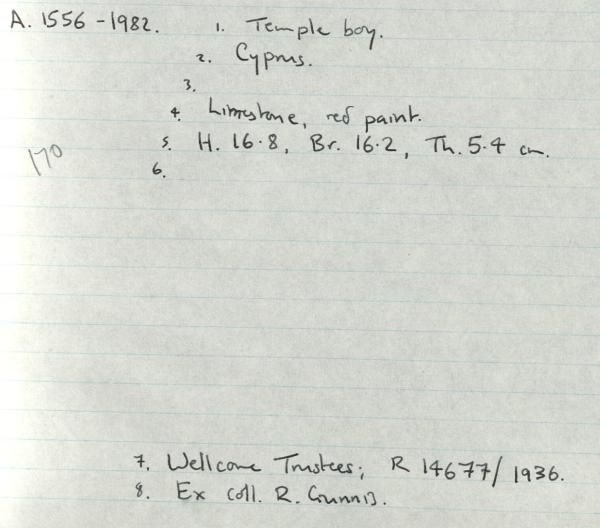 A. 1556-1982. 1. Temple boy.
2. Cyprus.
3.
4. Limestone, red paint.
5. H. 16.8, Br. 16.2, Th. 5.4 cm.
170
6.
7. Wellcome Trustees; R 14677/1936.
8. Ex coll. R. Gunnis.